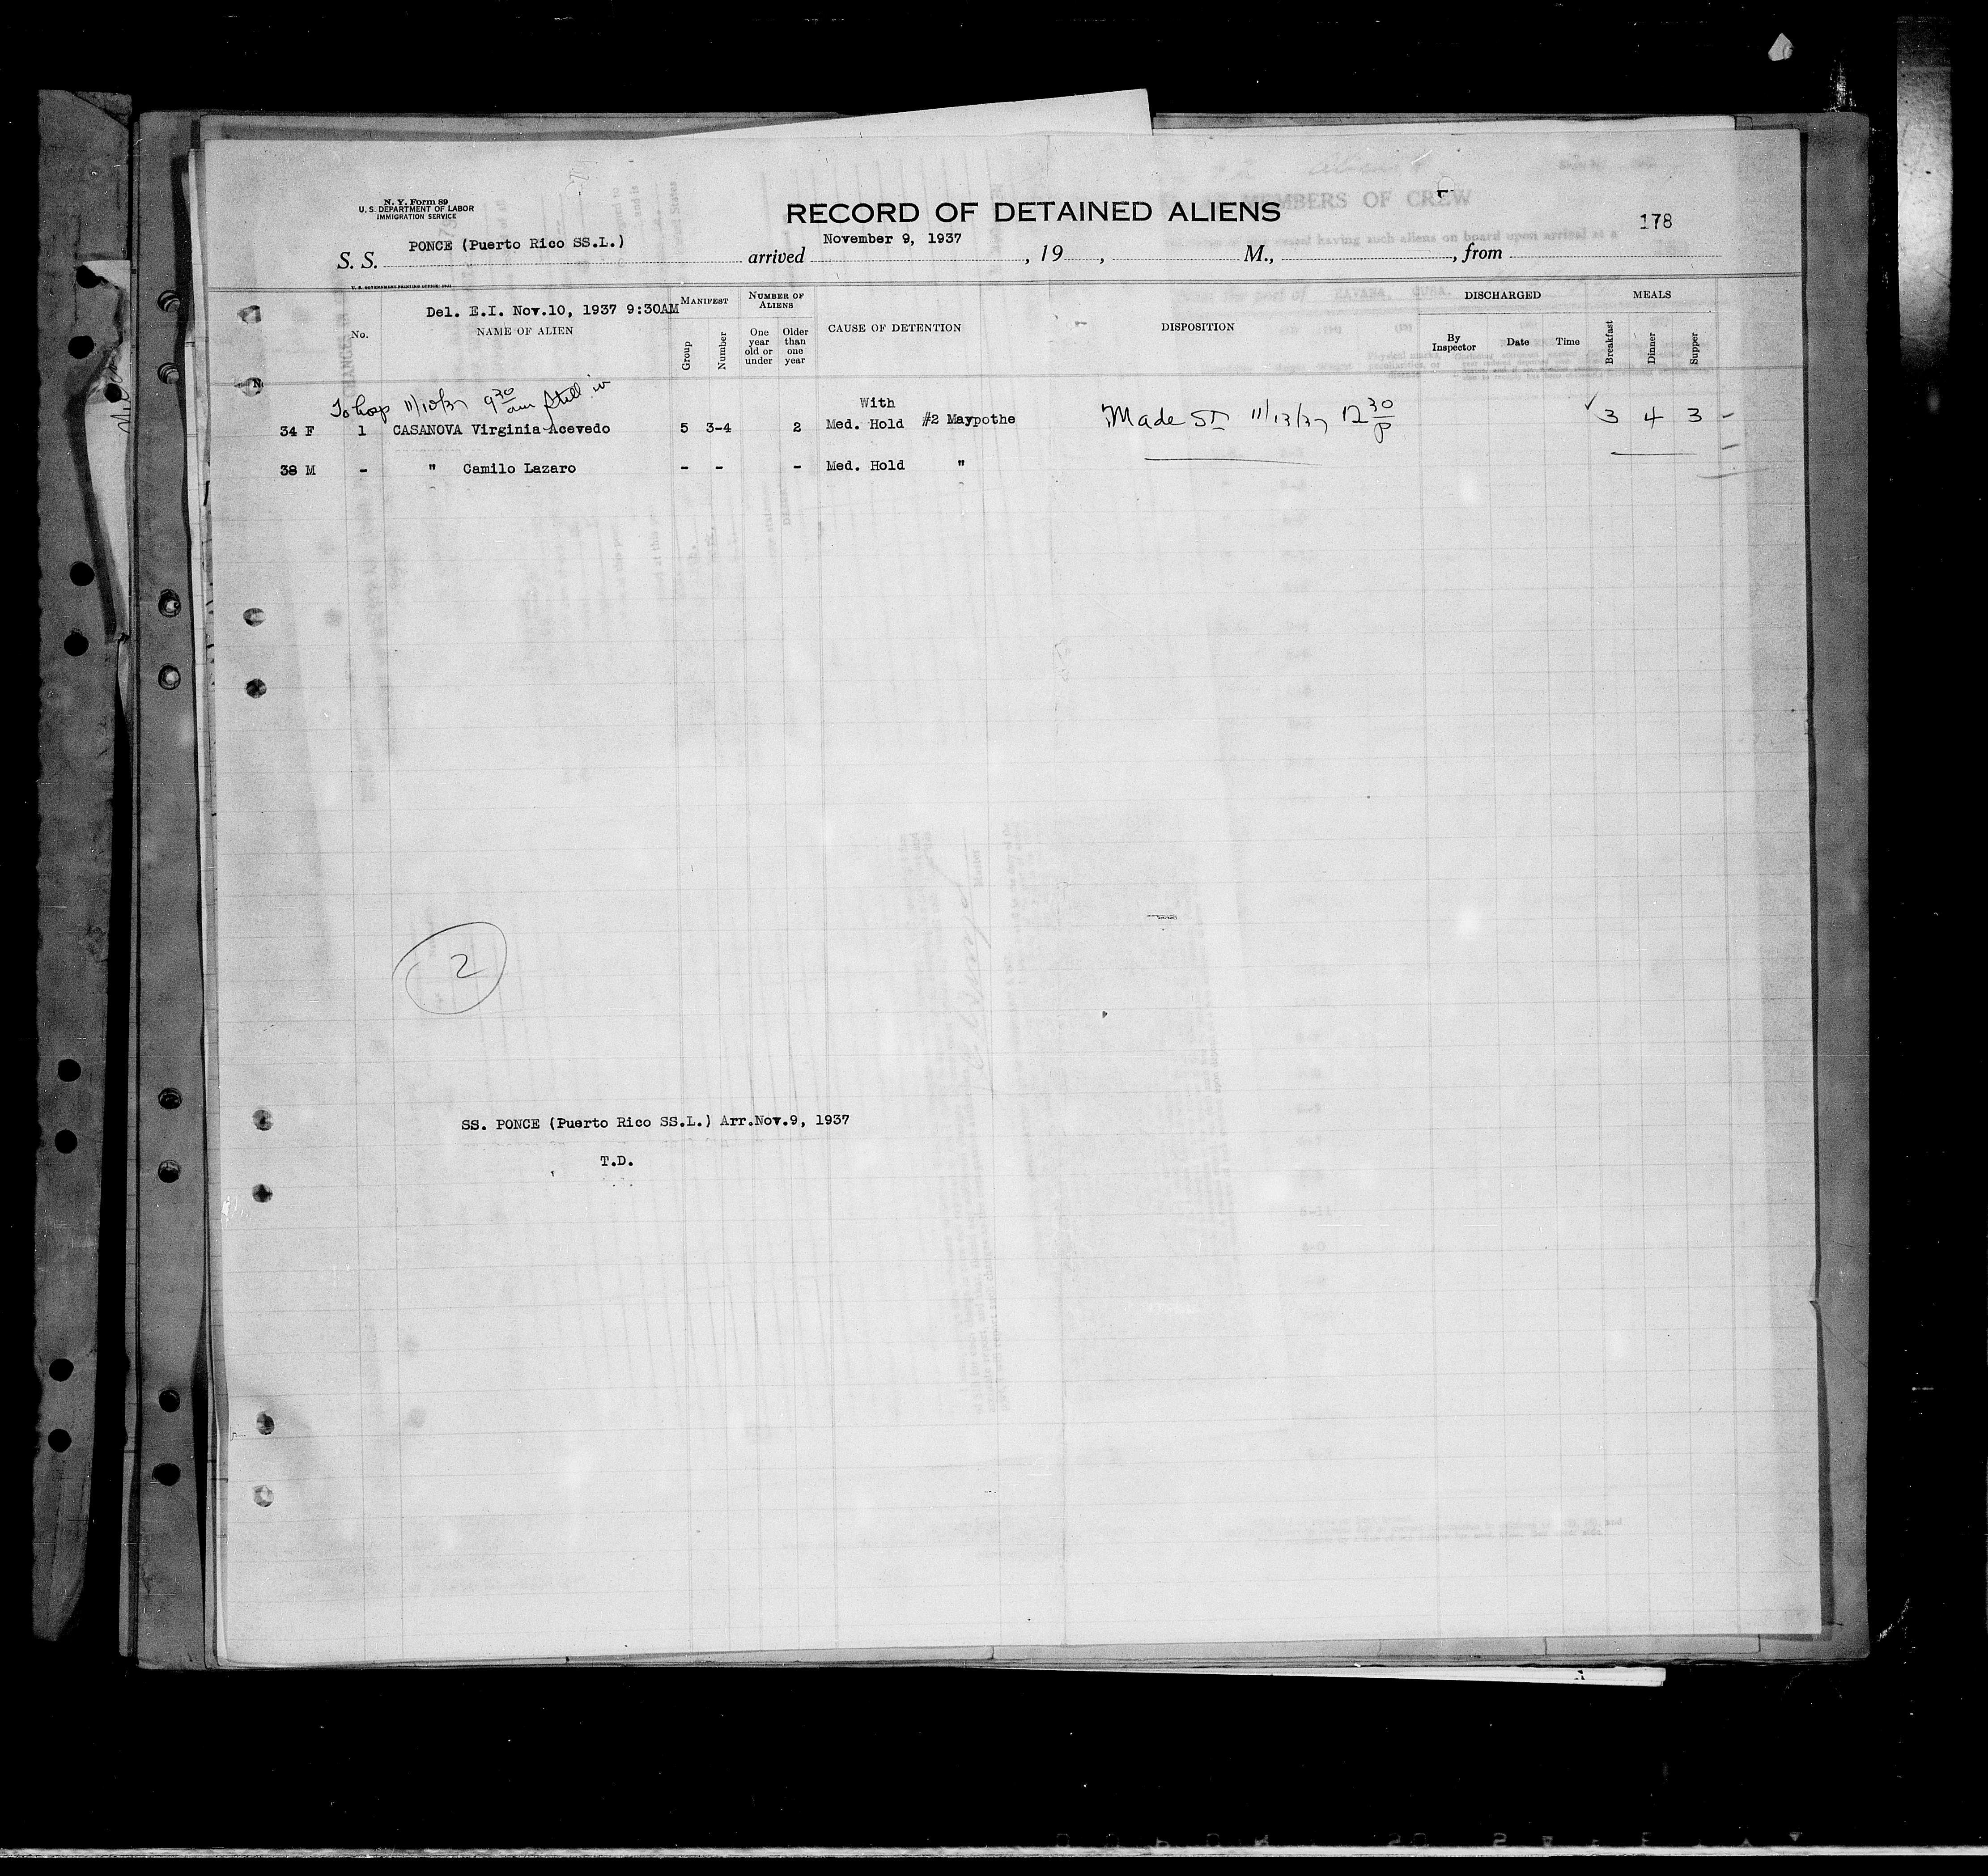 N. Y. Form 89
U. S. DEPARTMENT OF LABOR
IMMIGRATION SERVICE
RECORD OF DETAINED ALIENS
MEMBERS OF CREW
178
S. S. PONCE (Puerto Rico SS.L.) arrived November 9, 1937, 19, M., , from
U. S. GOVERNMENT PRINTING OFFICE
Del. E.I. Nov.10, 1937 9:30AM
MANIFEST NUMBER OF ALIENS DISCHARGED MEALS
No. NAME OF ALIEN Group Number One year old or under Older than one year CAUSE OF DETENTION DISPOSITION By Inspector Date Time Breakfast Dinner Supper
To hosp 11/10/37 9 30 am Still in
With
34 F 1 CASANOVA Virginia Acevedo 5 3-4 2 Med. Hold #2 Maypothe Made SI 11/13/37 12 30 P 3 4 3 -
38 M - " Camilo Lazaro - - - Med. Hold "
2
SS. PONCE (Puerto Rico SS.L.) Arr.Nov.9, 1937
T.D.